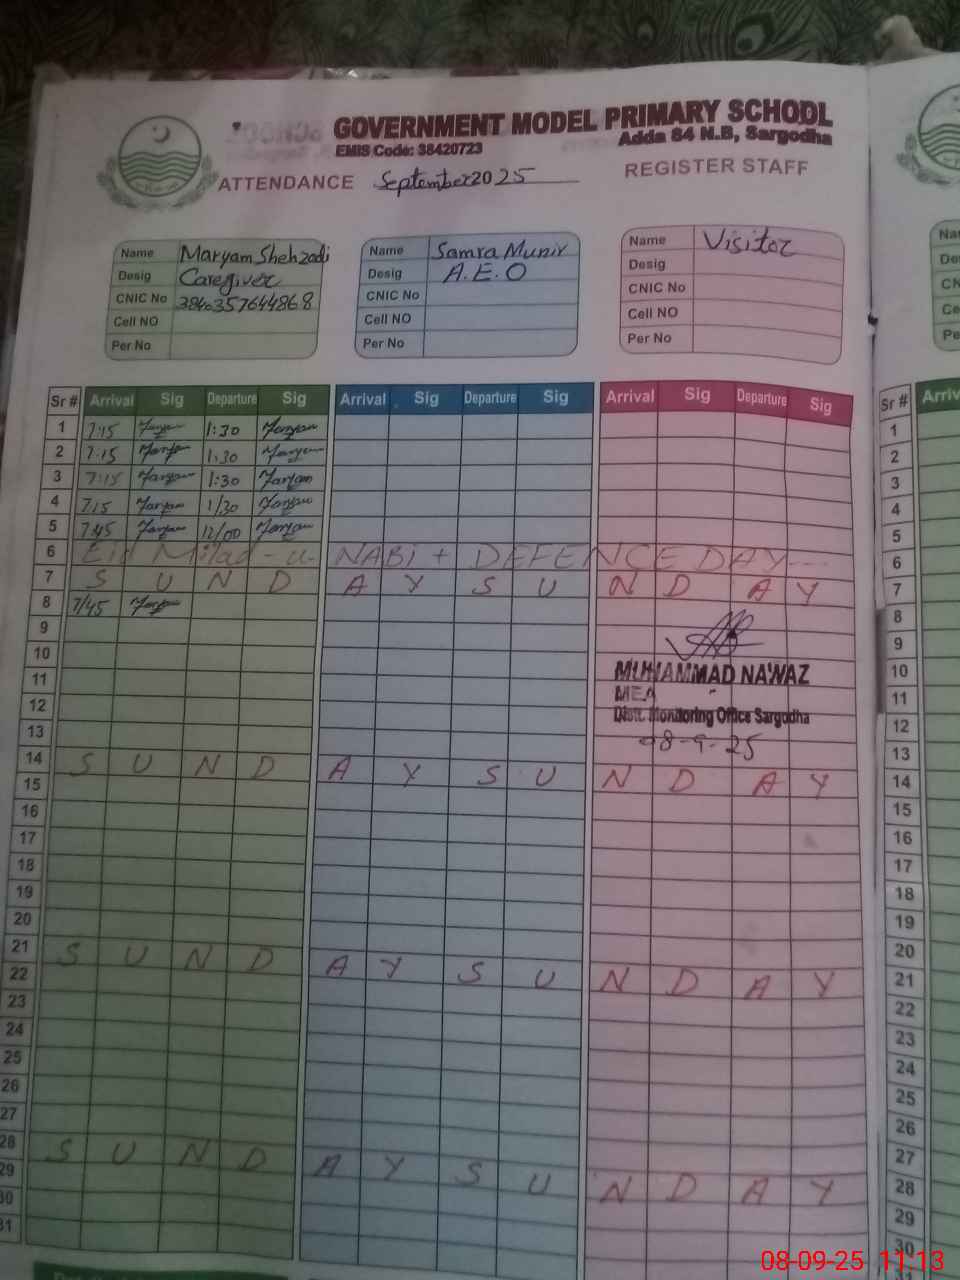 GOVERNMENT MODEL PRIMARY SCHOOL
EMIS Code: 38420723
Adda 84 N.B, Sargodha
ATTENDANCE September 2025 REGISTER STAFF
Name Maryam Shehzadi
Desig Caregiver
CNIC No 3840357644868
Cell NO
Per No
Name Samra Munir
Desig A.E.O
CNIC No
Cell NO
Per No
Name Visitor
Desig
CNIC No
Cell NO
Per No
Sr # Arrival Sig Departure Sig Arrival Sig Departure Sig Arrival Sig Departure Sig Sr #
1 7:15 Maryam 1:30 Maryam 1
2 7:15 Maryam 1:30 Maryam 2
3 7:15 Maryam 1:30 Maryam 3
4 7:15 Maryam 1/30 Maryam 4
5 7:45 Maryam 12/00 Maryam 5
6 Eid Milad-u- NABI + DEFENCE DAY--- 6
7 S U N D A Y S U N D A Y 7
8 7/45 Maryam 8
9 9
10 MUHAMMAD NAWAZ 10
11 MEA 11
12 Distt. Monitoring Office Sargodha 12
13 08-9-25 13
14 S U N D A Y S U N D A Y 14
15 15
16 16
17 17
18 18
19 19
20 20
21 S U N D A Y S U N D A Y 21
22 22
23 23
24 24
25 25
26 26
27 27
28 S U N D A Y S U N D A Y 28
29 29
30 30
31
08-09-25 11:13